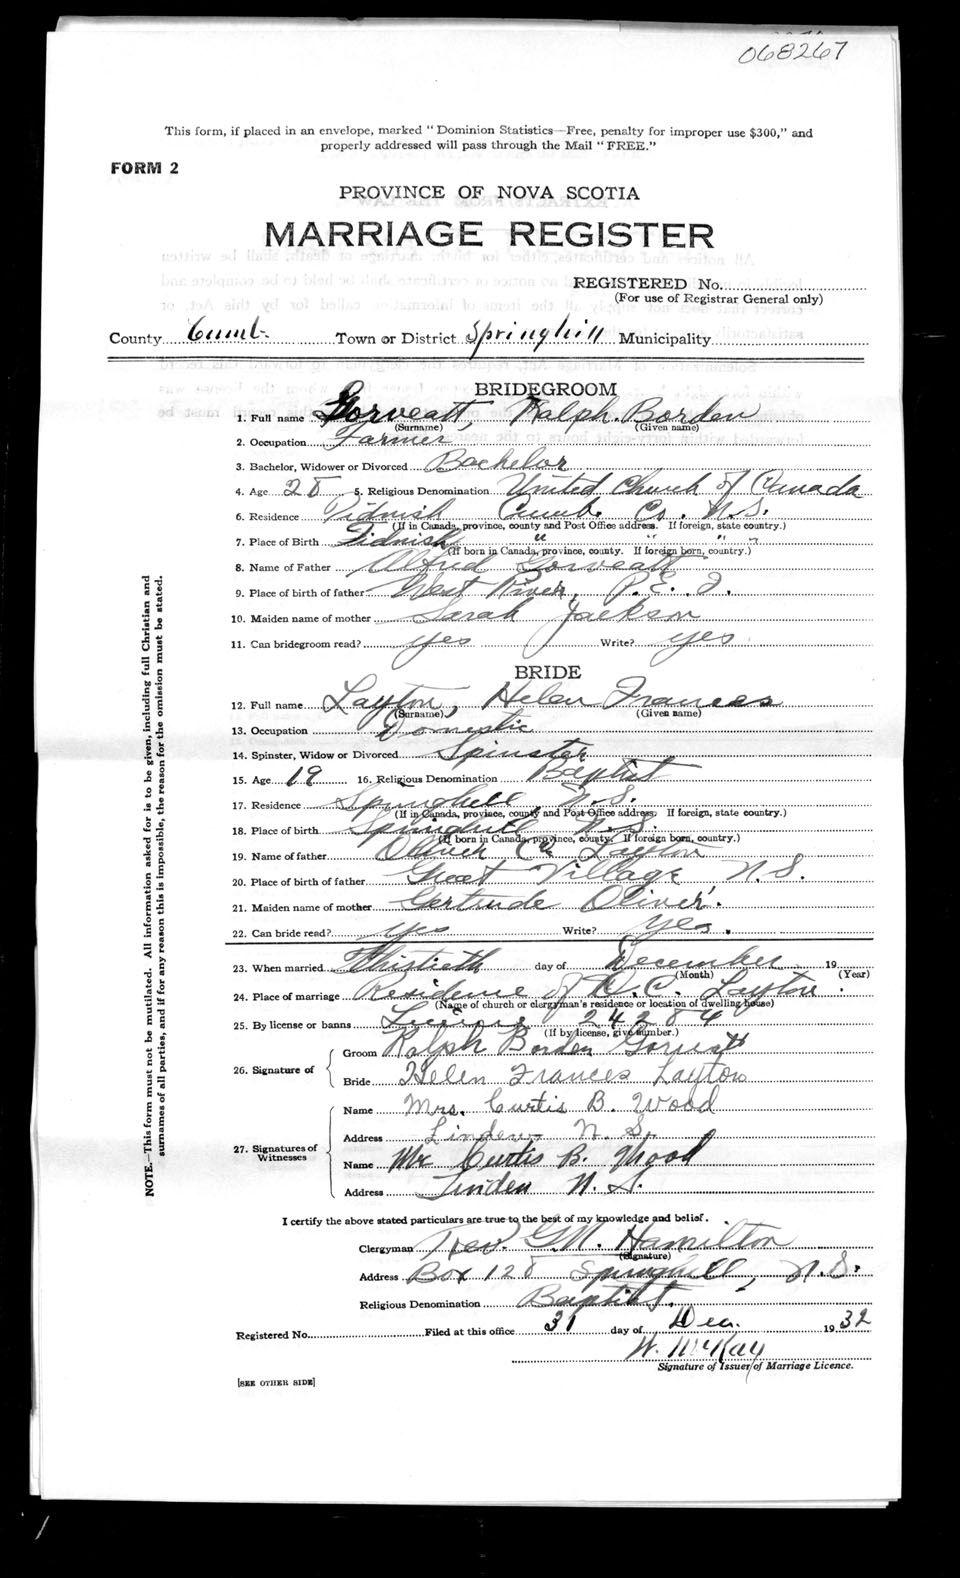 068267
This form, if placed in an envelope, marked "Dominion Statistics—Free, penalty for improper use $300," and
properly addressed will pass through the Mail "FREE."
FORM 2
PROVINCE OF NOVA SCOTIA
MARRIAGE REGISTER
REGISTERED No.
(For use of Registrar General only)
County Cumb. Town or District Springhill Municipality
BRIDEGROOM
1. Full name Gorveatt, Ralph Borden
(Surname) (Given name)
2. Occupation Farmer
3. Bachelor, Widower or Divorced Bachelor
4. Age 28 5. Religious Denomination United Church of Canada
6. Residence Tidnish Cumb. Co. N.S.
(If in Canada, province, county and Post Office address. If foreign, state country.)
7. Place of Birth Tidnish " " " "
(If born in Canada, province, county. If foreign born, country.)
8. Name of Father Alfred Gorveatt
9. Place of birth of father West River, P.E.I.
10. Maiden name of mother Sarah Jackson
11. Can bridegroom read? yes Write? yes
BRIDE
12. Full name Layton, Helen Frances
(Surname) (Given name)
13. Occupation Domestic
14. Spinster, Widow or Divorced Spinster
15. Age 19 16. Religious Denomination Baptist
17. Residence Springhill N.S.
(If in Canada, province, county and Post Office address. If foreign, state country.)
18. Place of birth Springhill N.S.
(If born in Canada, province, county. If foreign born, country.)
19. Name of father Layton
20. Place of birth of father Great Village, N.S.
21. Maiden name of mother Gertrude Oliver.
22. Can bride read? yes Write? yes.
23. When married Thirtieth day of December 19
(Month) (Year)
24. Place of marriage Residence of C. Layton.
(Name of church or clergyman's residence or location of dwelling house)
25. By license or banns License 24284
(If by license, give number.)
26. Signature of
Groom Ralph Borden Gorveatt
Bride Helen Frances Layton
27. Signatures of Witnesses
Name Mrs. Curtis B. Wood
Address Linden N.S.
Name Mr Curtis B. Wood
Address Linden N.S.
I certify the above stated particulars are true to the best of my knowledge and belief.
Clergyman Rev. G.M. Hamilton
(Signature)
Address Box 128 Springhill, N.S.
Religious Denomination Baptist.
Registered No. Filed at this office 31 day of Dec. 19 32
W. McKay
Signature of Issuer of Marriage Licence.
[SEE OTHER SIDE]
NOTE.—This form must not be mutilated. All information asked for is to be given, including full Christian and
surnames of all parties, and if for any reason this is impossible, the reason for the omission must be stated.